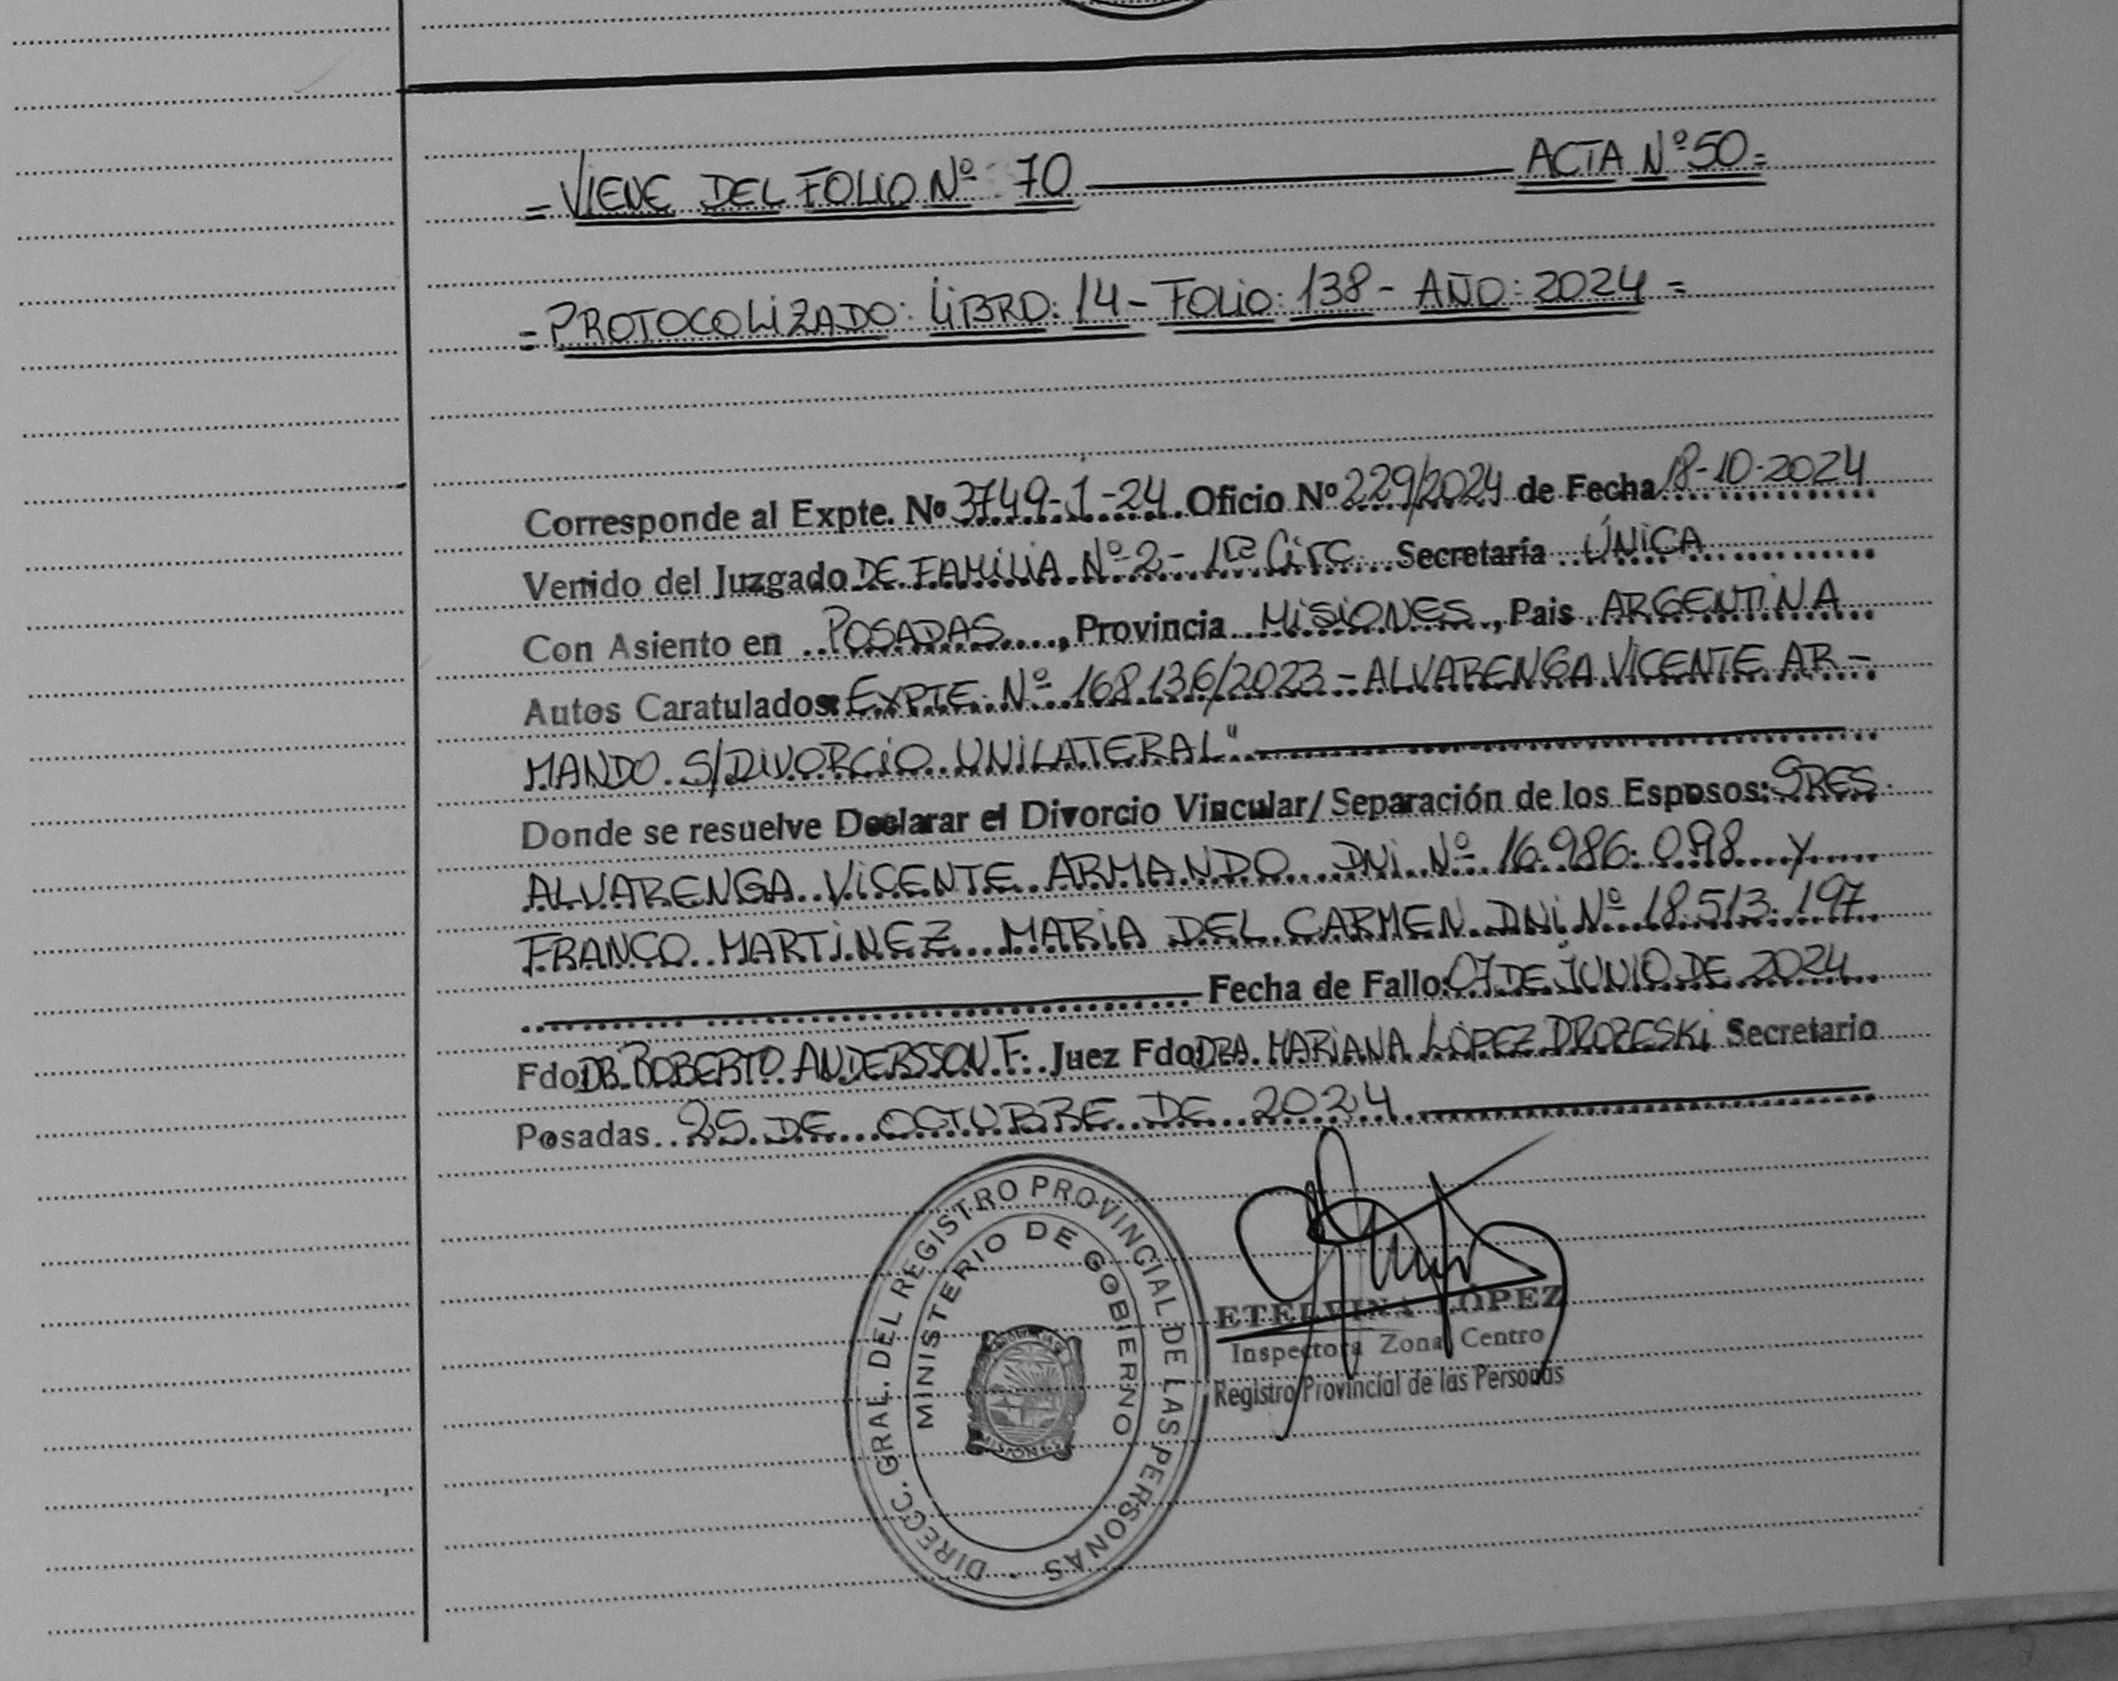 = VIENE DEL FOLIO Nº 70 ACTA Nº 50 =
= PROTOCOLIZADO: LIBRO: 14 - FOLIO: 138 - AÑO: 2024 =
Corresponde al Expte. Nº 3749-1-24 Oficio Nº 229/2024 de Fecha 18-10-2024
Venido del Juzgado DE FAMILIA Nº 2 - 1ra Circ. Secretaría ÚNICA
Con Asiento en POSADAS, Provincia MISIONES, Pais ARGENTINA
Autos Caratulados: EXPTE. Nº 168136/2023 - ALVARENGA VICENTE AR-
MANDO S/DIVORCIO UNILATERAL"
Donde se resuelve Declarar el Divorcio Vincular/Separación de los Esposos: SRES.
ALVARENGA VICENTE ARMANDO DNI Nº 16.986. Y
FRANCO MARTINEZ MARIA DEL CARMEN DNI Nº 18.513.197
Fecha de Fallo: 07 DE JUNIO DE 2024
Fdo DR. ROBERTO ANDERSSON F. Juez Fdo DRA. MARIANA LÓPEZ DROZESKI Secretario
Posadas 25 DE OCTUBRE DE 2024
DIRECC. GRAL. DEL REGISTRO PROVINCIAL DE LAS PERSONAS
MINISTERIO DE GOBIERNO
ETELVINA LÓPEZ
Inspectora Zona Centro
Registro Provincial de las Personas